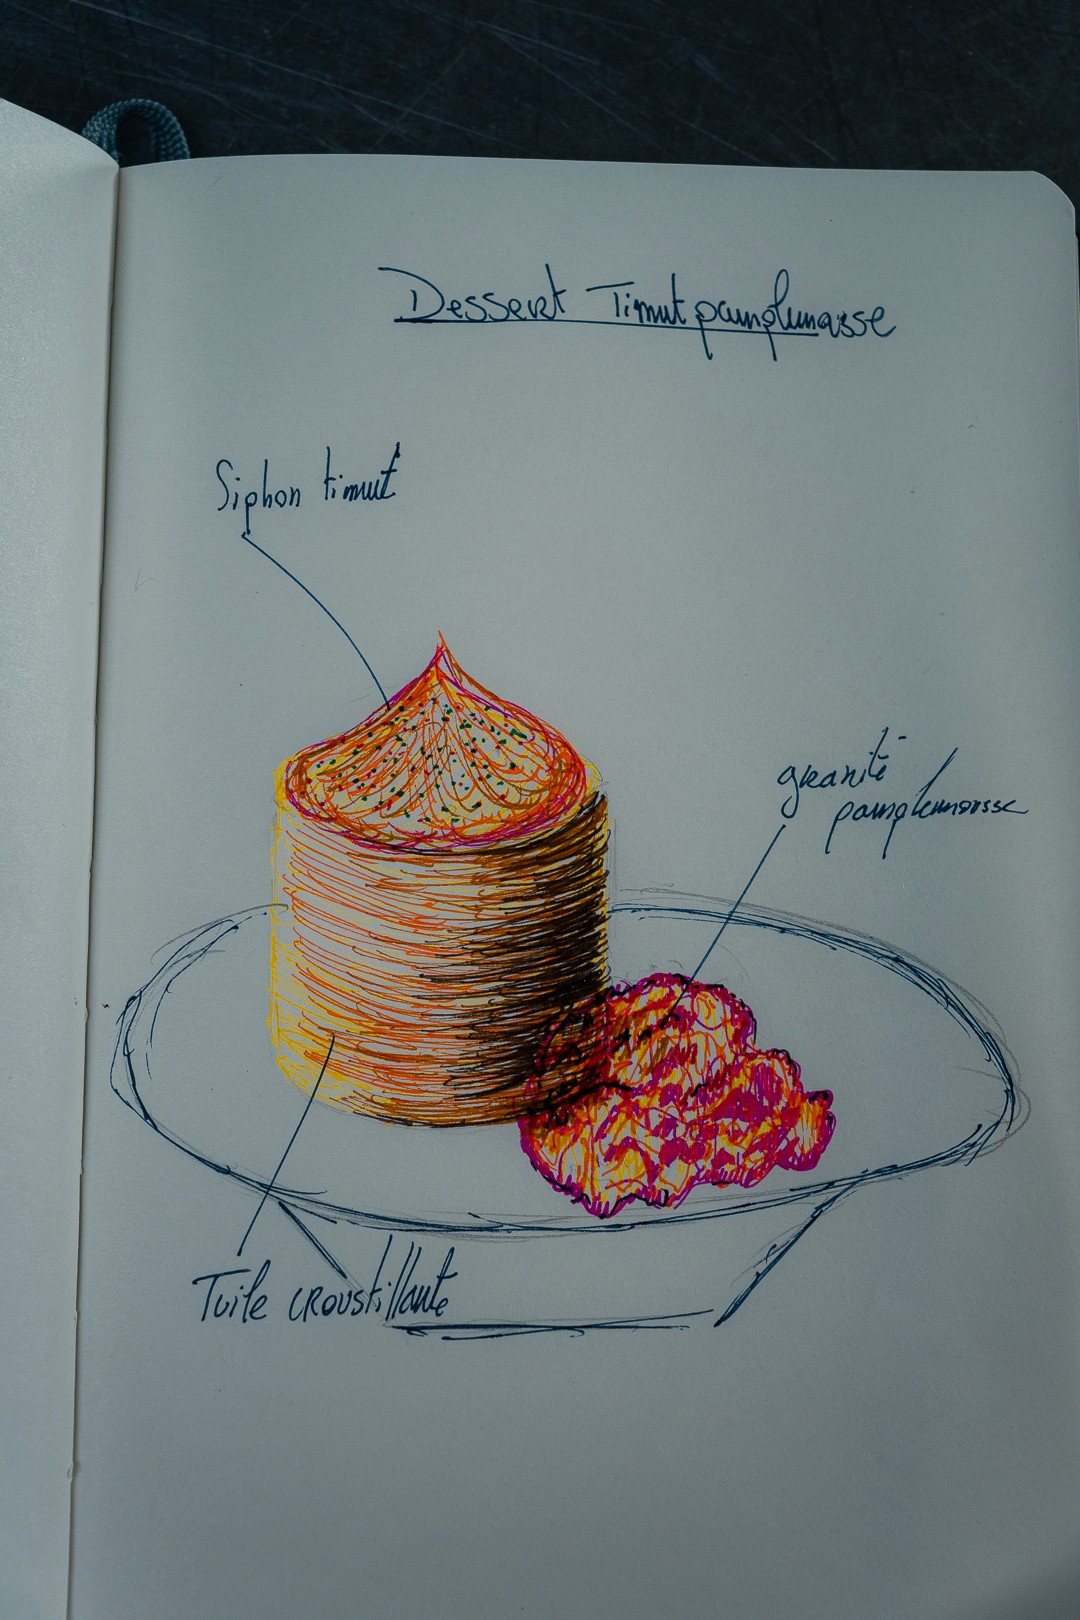 Dessert Timut pamplemousse
Siphon timut
granité
pamplemousse
Tuile croustillante